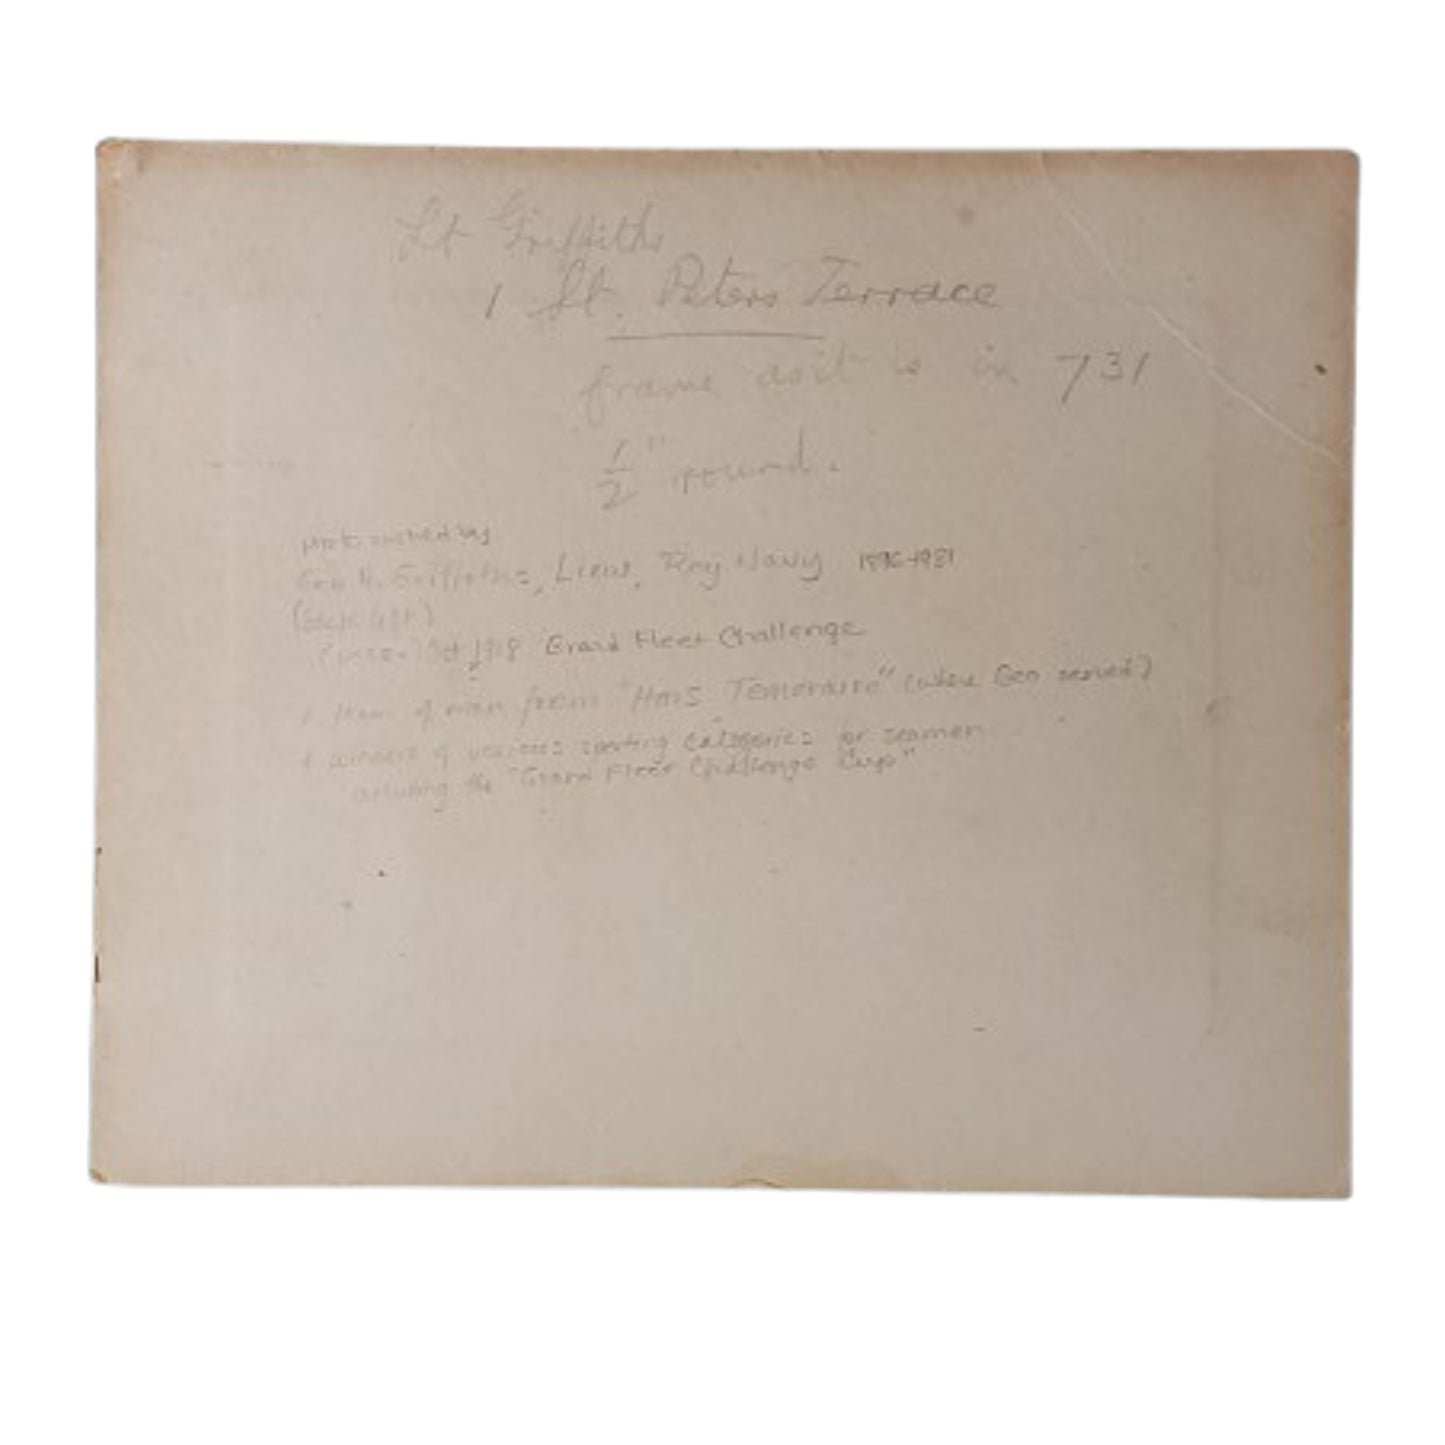 Lt Griffiths
1 St. Peters Terrace
frame as it is in 731
1/2" round.
Photo owned by
Geo H. Griffiths, Lieut, Roy Navy 1896-1981
(back left)
Oct 1918 Grand Fleet Challenge
team of men from "HMS Temeraire" (where Geo served)
+ winners of various sporting categories for seamen
including the "Grand Fleet Challenge Cup"